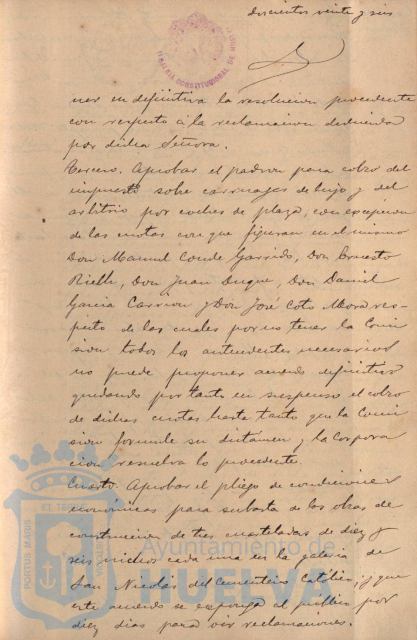 doscientos veinte y seis
ALCALDIA CONSTITUCIONAL DE HUELVA
ner en definitiva la resolucion procedente
con respecto á la reclamacion deducida
por dicha Señora.
Tercero. Aprobar el padron para cobro del
impuesto sobre carruages de lujo y del
arbitrio por coches de plaza, con excepcion
de las cuotas con que figuran en el mismo
Don Manuel Conde Garrido, Don Ernesto
Don Juan Duque, Don Daniel
Garcia Carrion y Don José Coto Mora res-
pecto de las cuales por no tener la Comi
sion todos los antecedentes necesarios
no puede proponer acuerdo definitivo
quedando por tanto en suspenso el cobro
de dichas cuotas hasta tanto que la Comi
sion formule su dictamen y la Corpora
cion resuelva lo procedente.
Cuarto. Aprobar el pliego de condiciones
económicas para subasta de las obras de
construccion de tres cuarteladas de diez y
seis nichos cada una en la galeria de
San Nicolás del Cementerio Católico, y que
este acuerdo se exponga al público por
diez dias para oir reclamaciones.
PORTUS MARIS
ET TERRAE
CUSTODIA
Ayuntamiento de
HUELVA